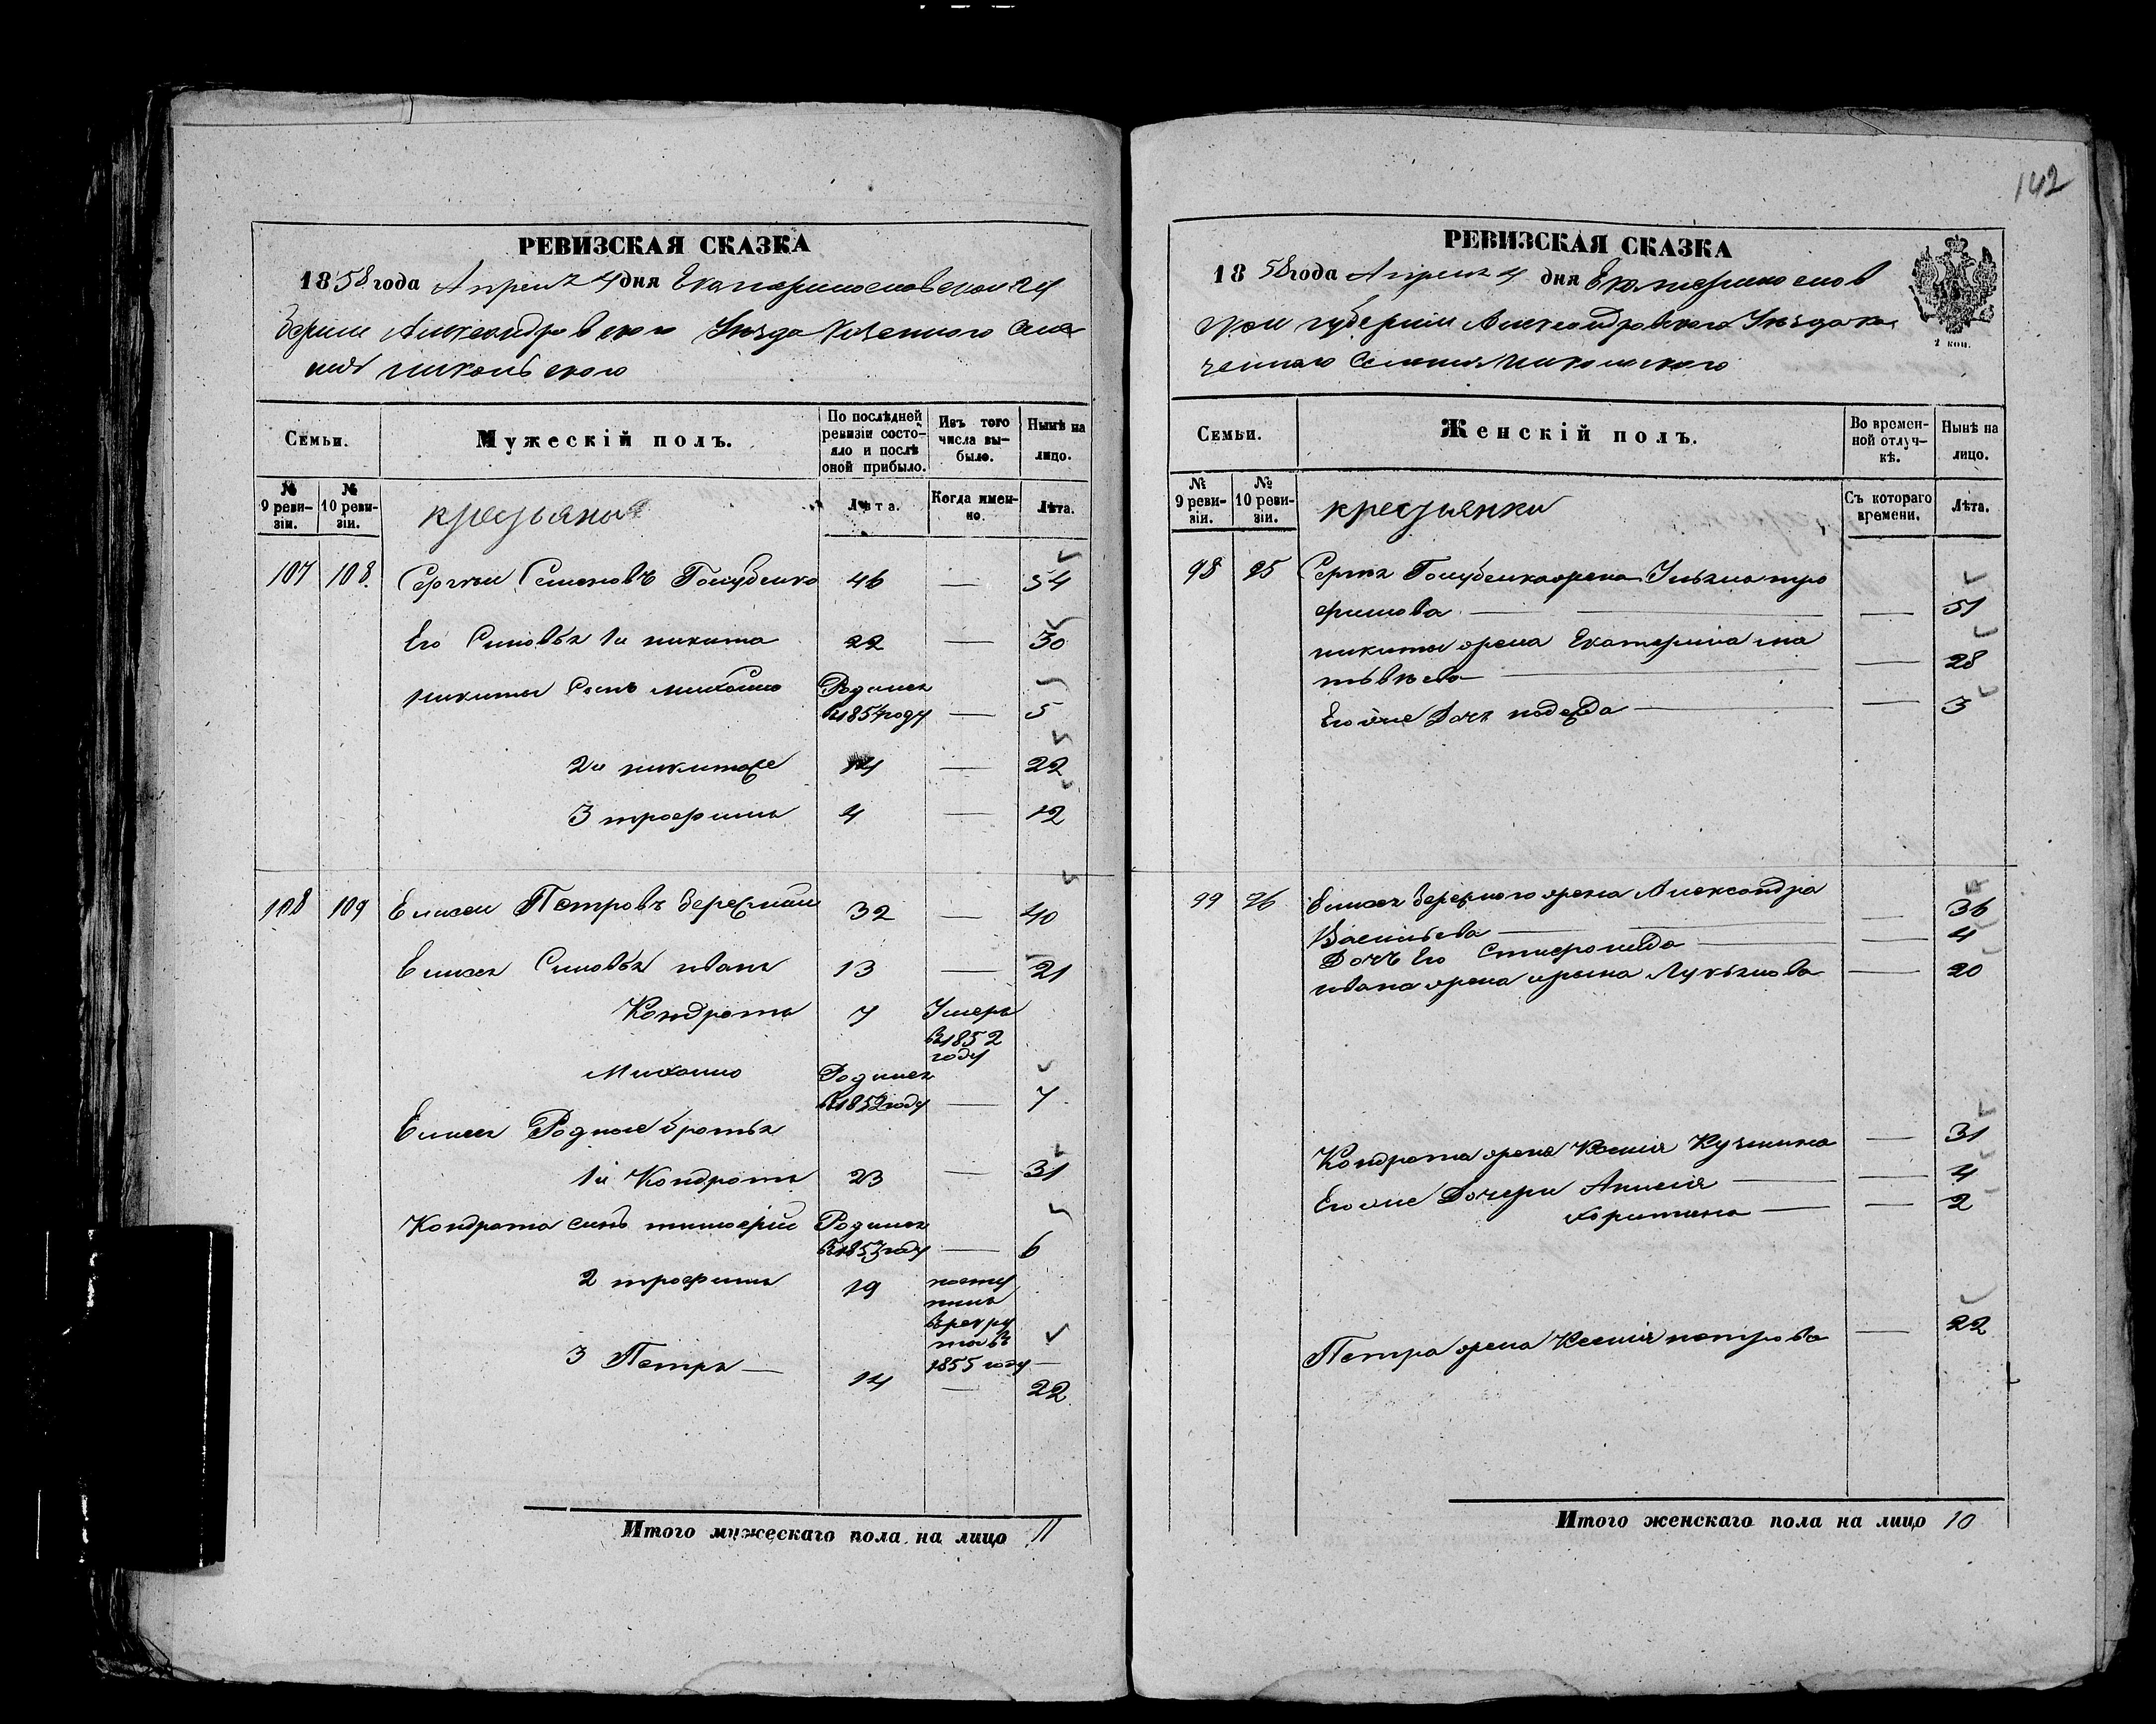 142
РЕВИЗСКАЯ СКАЗКА
1858 года Апреля 4 дня Екатеринославской гу
бернии Александровского Уезда Казенного Селе
ния никольского
Семьи.
Мужескій полъ.
По послѣдней ревизіи состояло и послѣ оной прибыло.
Изъ того числа выбыло.
Нынѣ на лицо.
№ 9 ревизіи.
№ 10 ревизіи.
крестьяныя
Лѣта.
Когда именно.
Лѣта.
107 108. Сергѣй Семеновъ Голубенко 46 — 54
Его Сыновья 1й никита 22 — 30
никиты Сынъ михайло Родился в 1854 году — 5
2й никита 14 — 22
3 трофимъ 4 — 12
108 109 Елисей Петровъ 32 — 40
Елисея Сыновья иванъ 13 — 21
Кондратъ 7 Умеръ в 1852 году
Михайло Родился в 1852 году — 7
Елисея Родные братья
1й Кондратъ 23 — 31
Кондрата сынъ тимофей Родился в 1853 году — 6
2 трофимъ 19 поступилъ в рекруты въ 1855 году —
3 Петръ — 14 — 22
Итого мужескаго пола на лицо 11
РЕВИЗСКАЯ СКАЗКА
1858 года Апреля 4 дня Екатеринослов
ской губернии Александровского Уезда ка
зенного Селения никольского
2 коп.
Семьи.
Женскій полъ.
Во временной отлучкѣ.
Нынѣ на лицо.
№ 9 ревизіи.
№ 10 ревизіи.
крестьянки
Съ котораго времени.
Лѣта.
98 95 Сергея Голубенка жена Ульяна тро
фимова — — 51
никиты жена Екатерина ма
твѣева — — 28
Его же Дочь — — 3
99 96 Елисея жена Александра
Васильева — — 36
Дочь Его — — 4
ивана жена ирина Лукьянова — 20
Кондрата жена Ксения Кузмина — 31
Его же Дочери Анисия — — 4
харитина — — 2
Петра жена Ксения петрова — 22
Итого женскаго пола на лицо 10